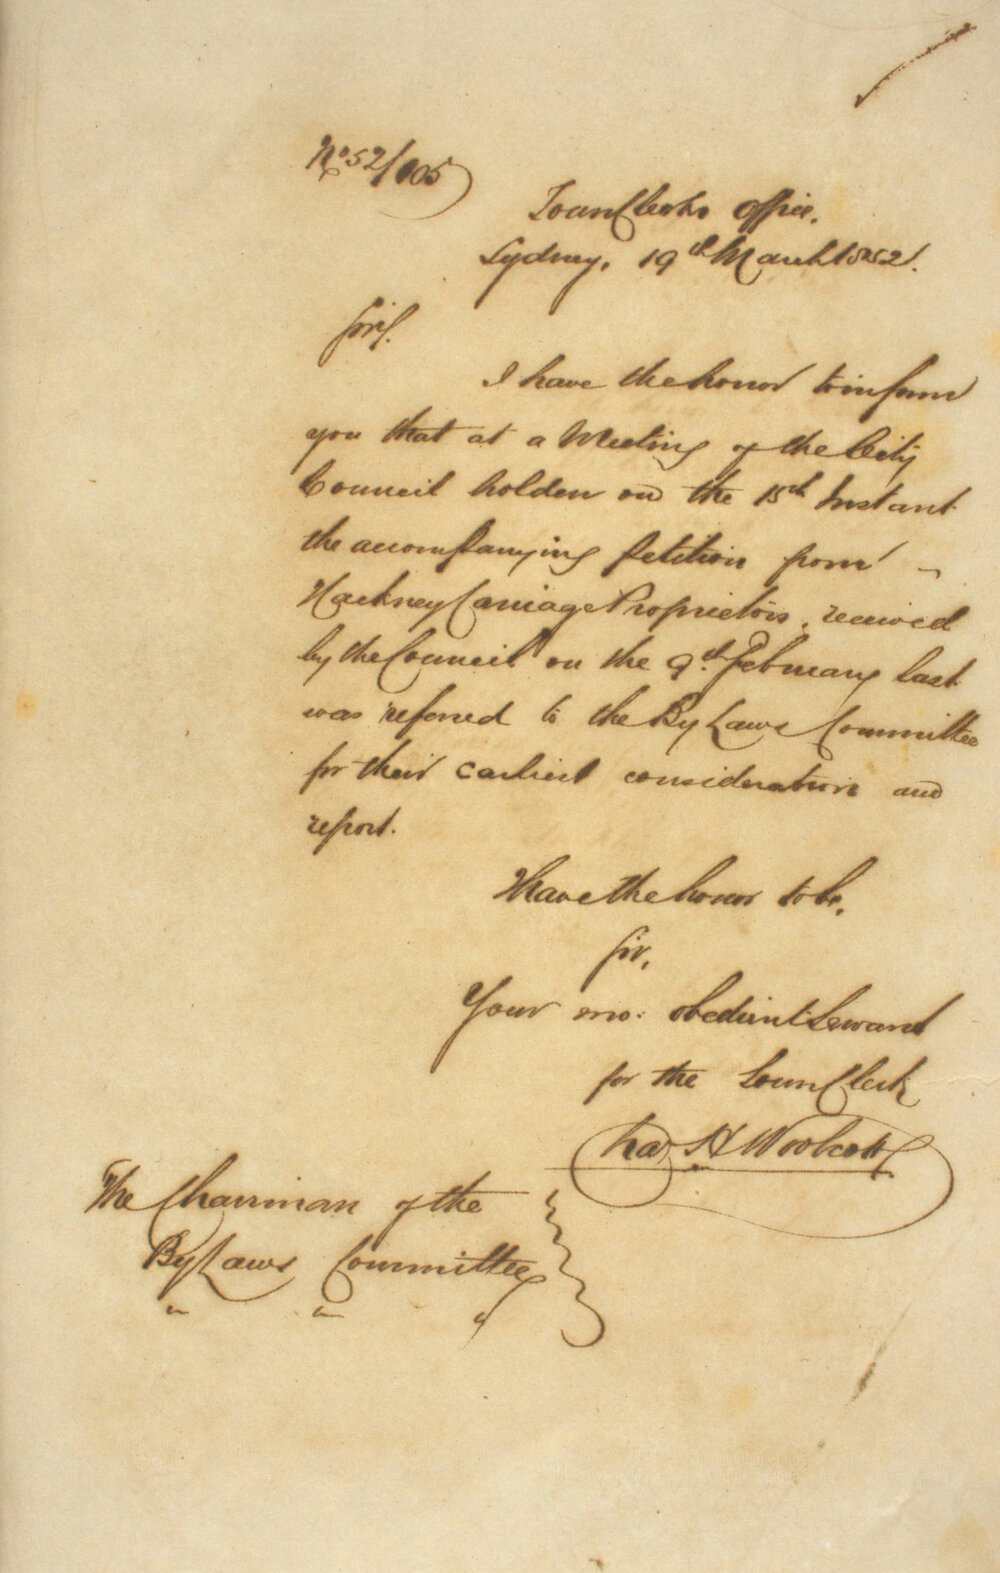 No 52/105
Town Clerks Office.
Sydney, 19th March 1852.
Sir,
I have the honor to inform
you that at a Meeting of the City
Council holden on the 15th Instant
the accompanying petition from
Hackney Carriage Proprietors, received
by the Council on the 9th February last
was referred to the By Laws Committee
for their earliest consideration and
report.
I have the honor to be,
Sir,
Your mo: obedient Servant
for the Town Clerk
Chas H Woolcott
The Chairman of the
By Laws Committee
" " "